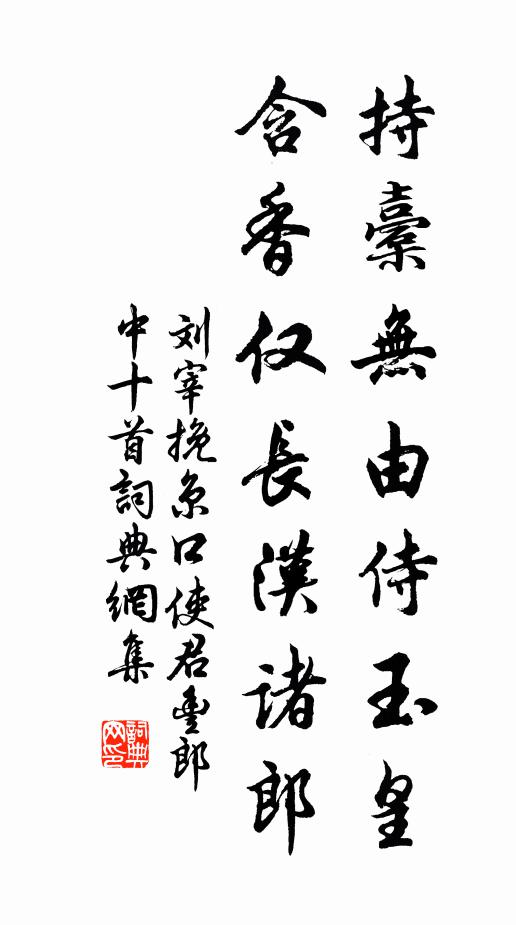 持橐無由侍玉皇
含香仅長漢諸郎
刘宰挽京口使君豊郎
中十首詞典網集
詞典網印